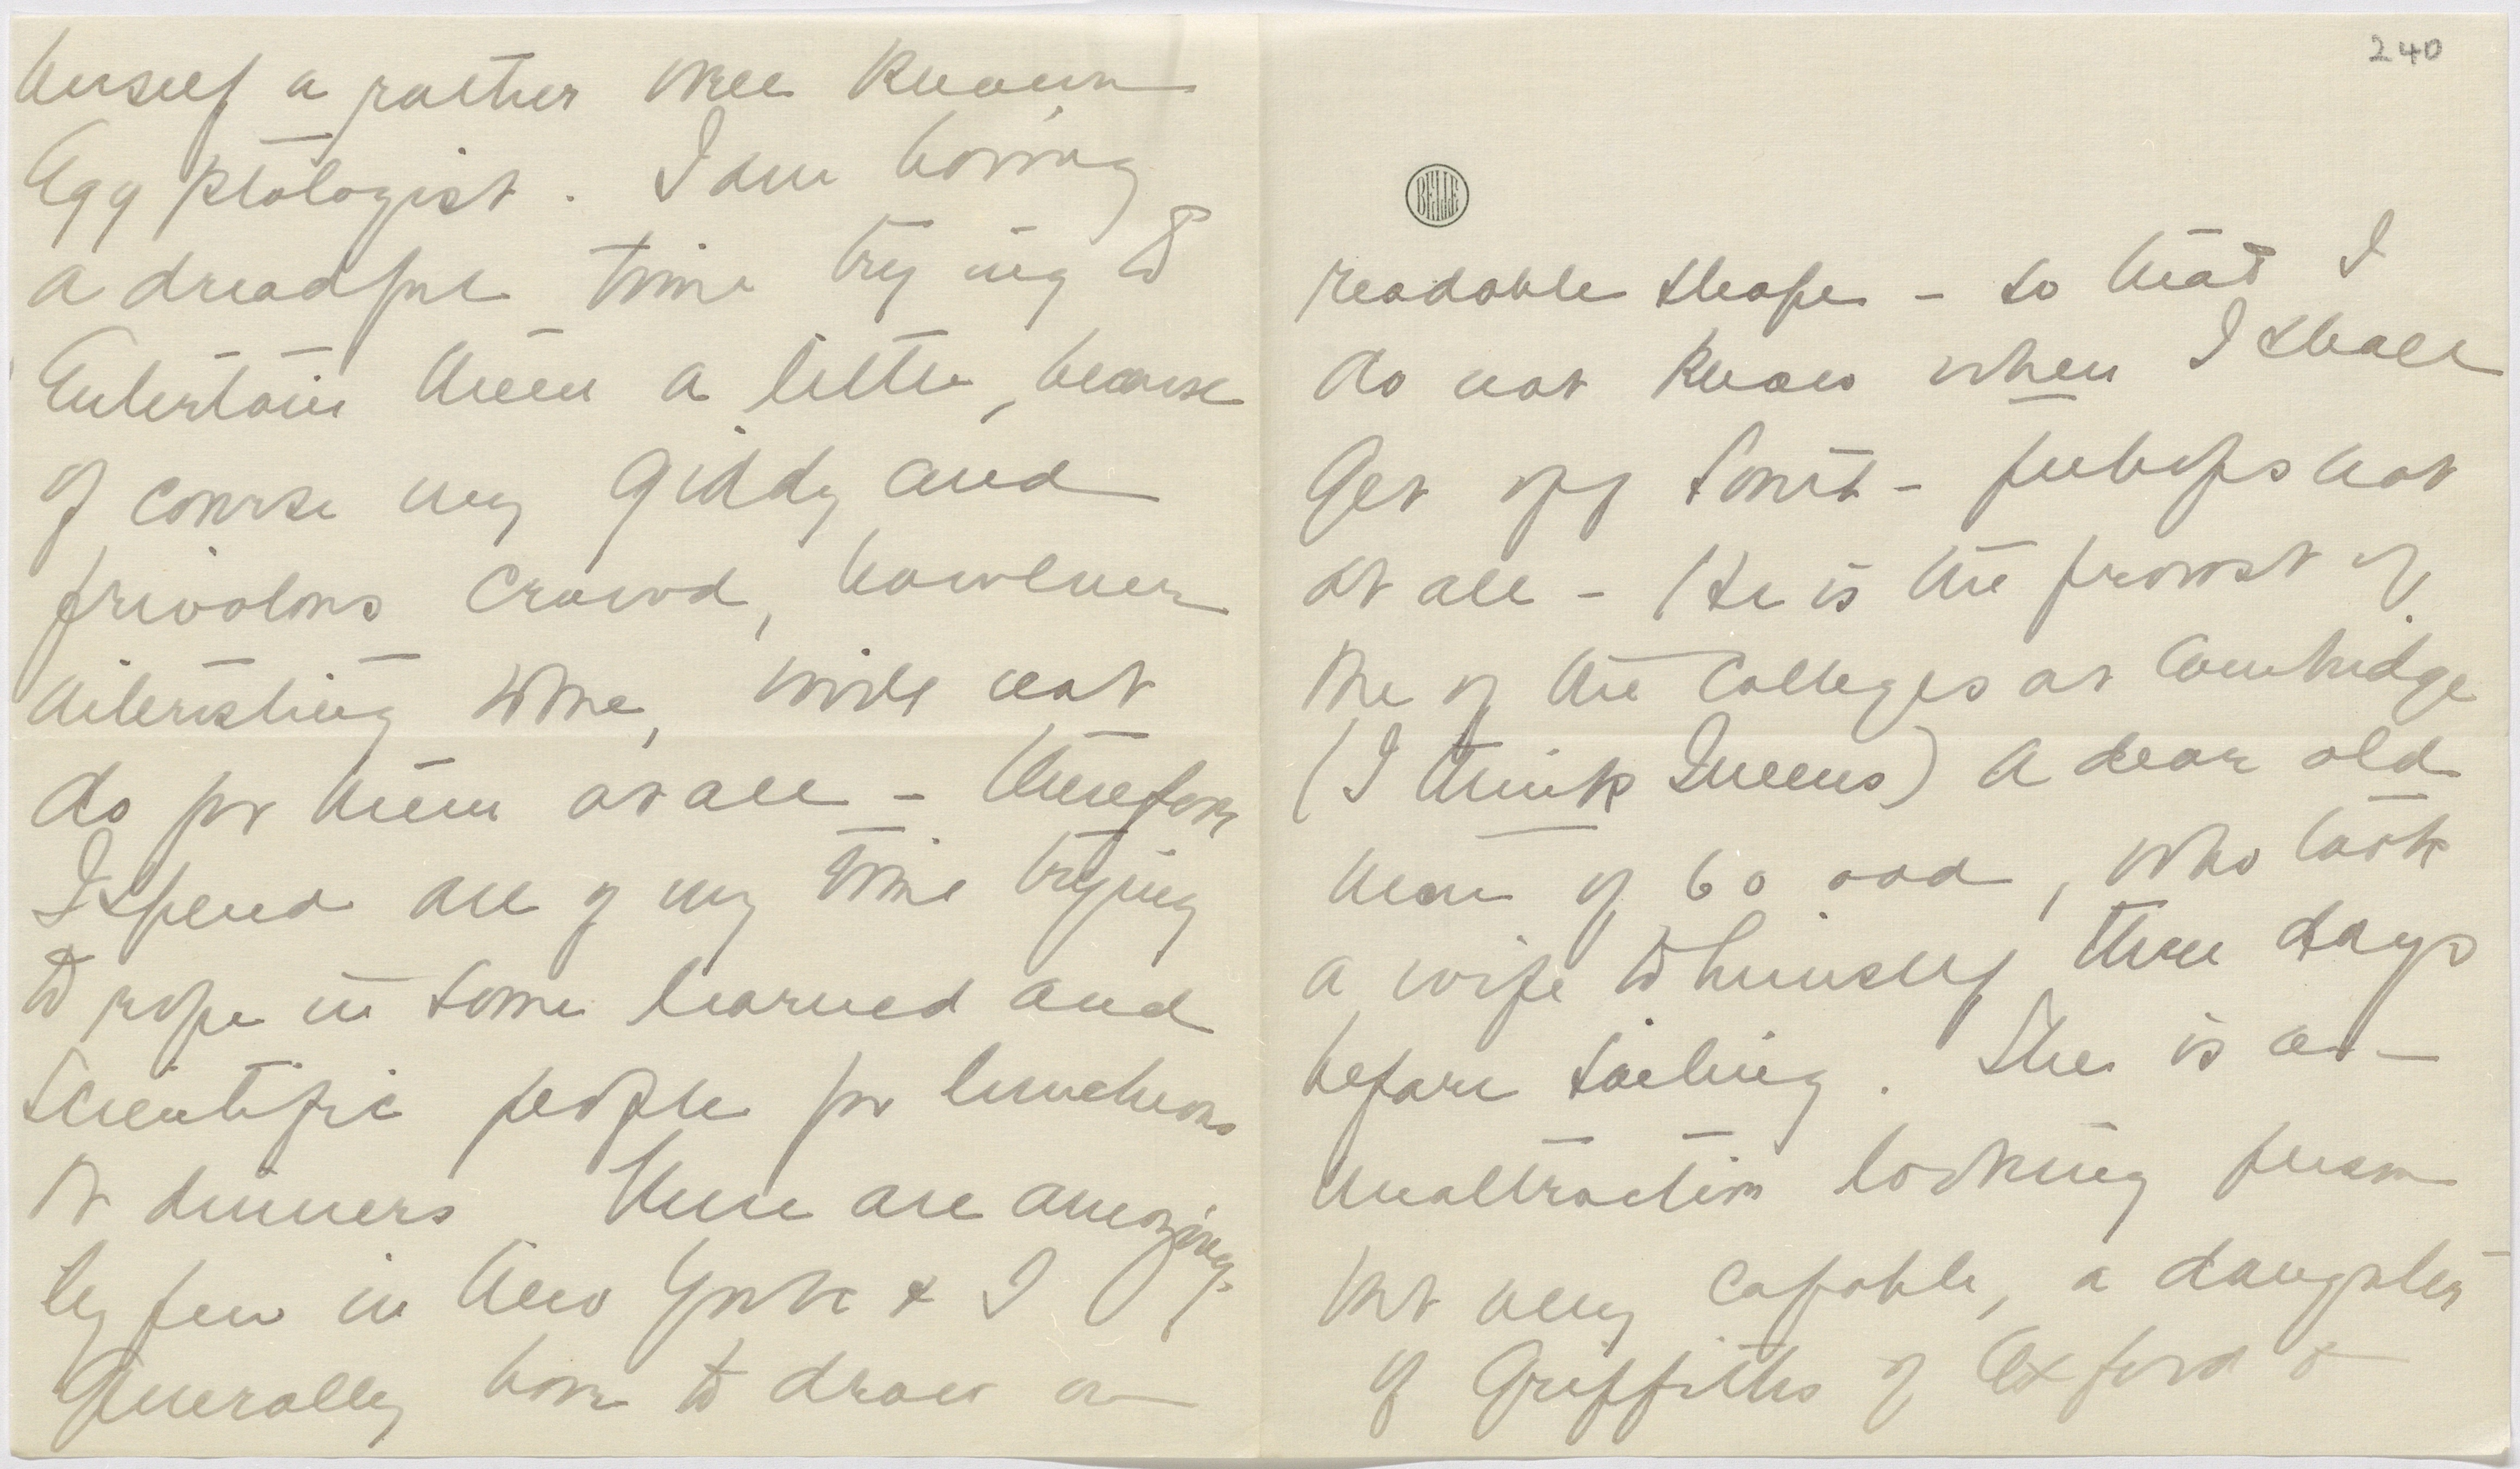 herself a rather well known
Egyptologist. I am having
a dreadful time trying to
entertain them a little, because
of course my giddy and
frivolous crowd, however
interesting to me, will not
do for them at all – therefore
I spend all of my time trying
to rope in some learned and
scientific people for luncheons
or dinners There are amazing-
ly few in New York & I
generally have to draw on
240
BELLE
readable shape – so that I
do not know when I shall
get off South – perhaps not
at all – He is the provost of
one of the Colleges at Cambridge
(I think Queens) a dear old
man of 60 odd, who took
a wife to himself three days
before sailing. She is an
unattractive looking person
but very capable, a daughter
of Griffiths of Oxford &